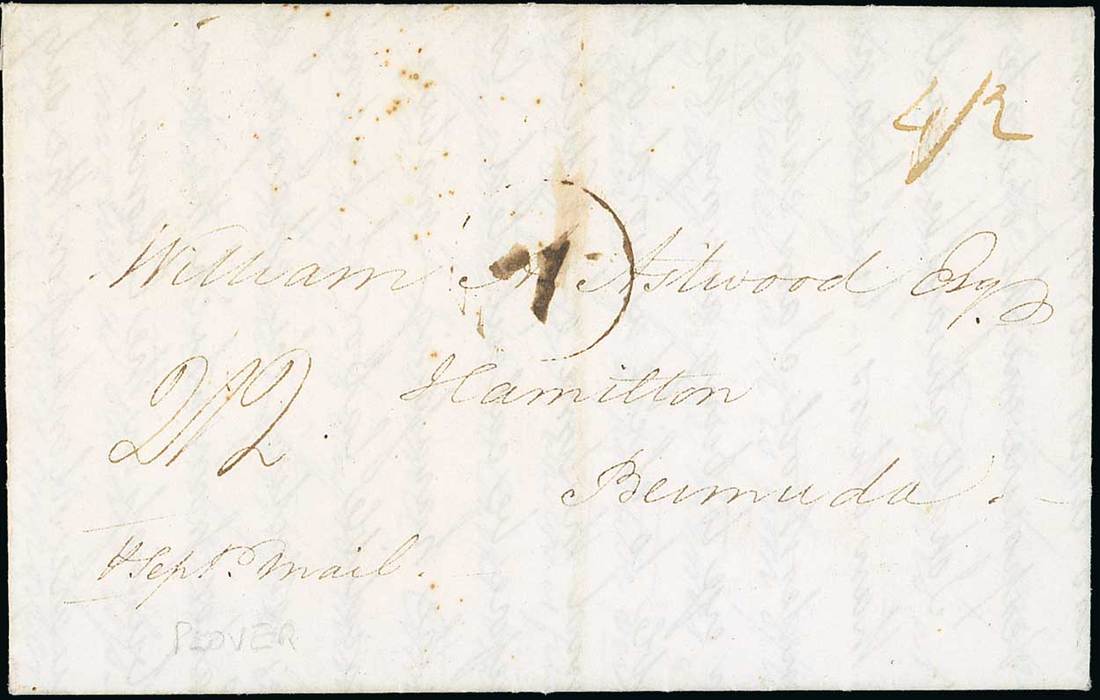 4/2
William A Astwood Esq.
1
2/2
Hamilton
Bermuda.
Sept. Mail.
PLOVER